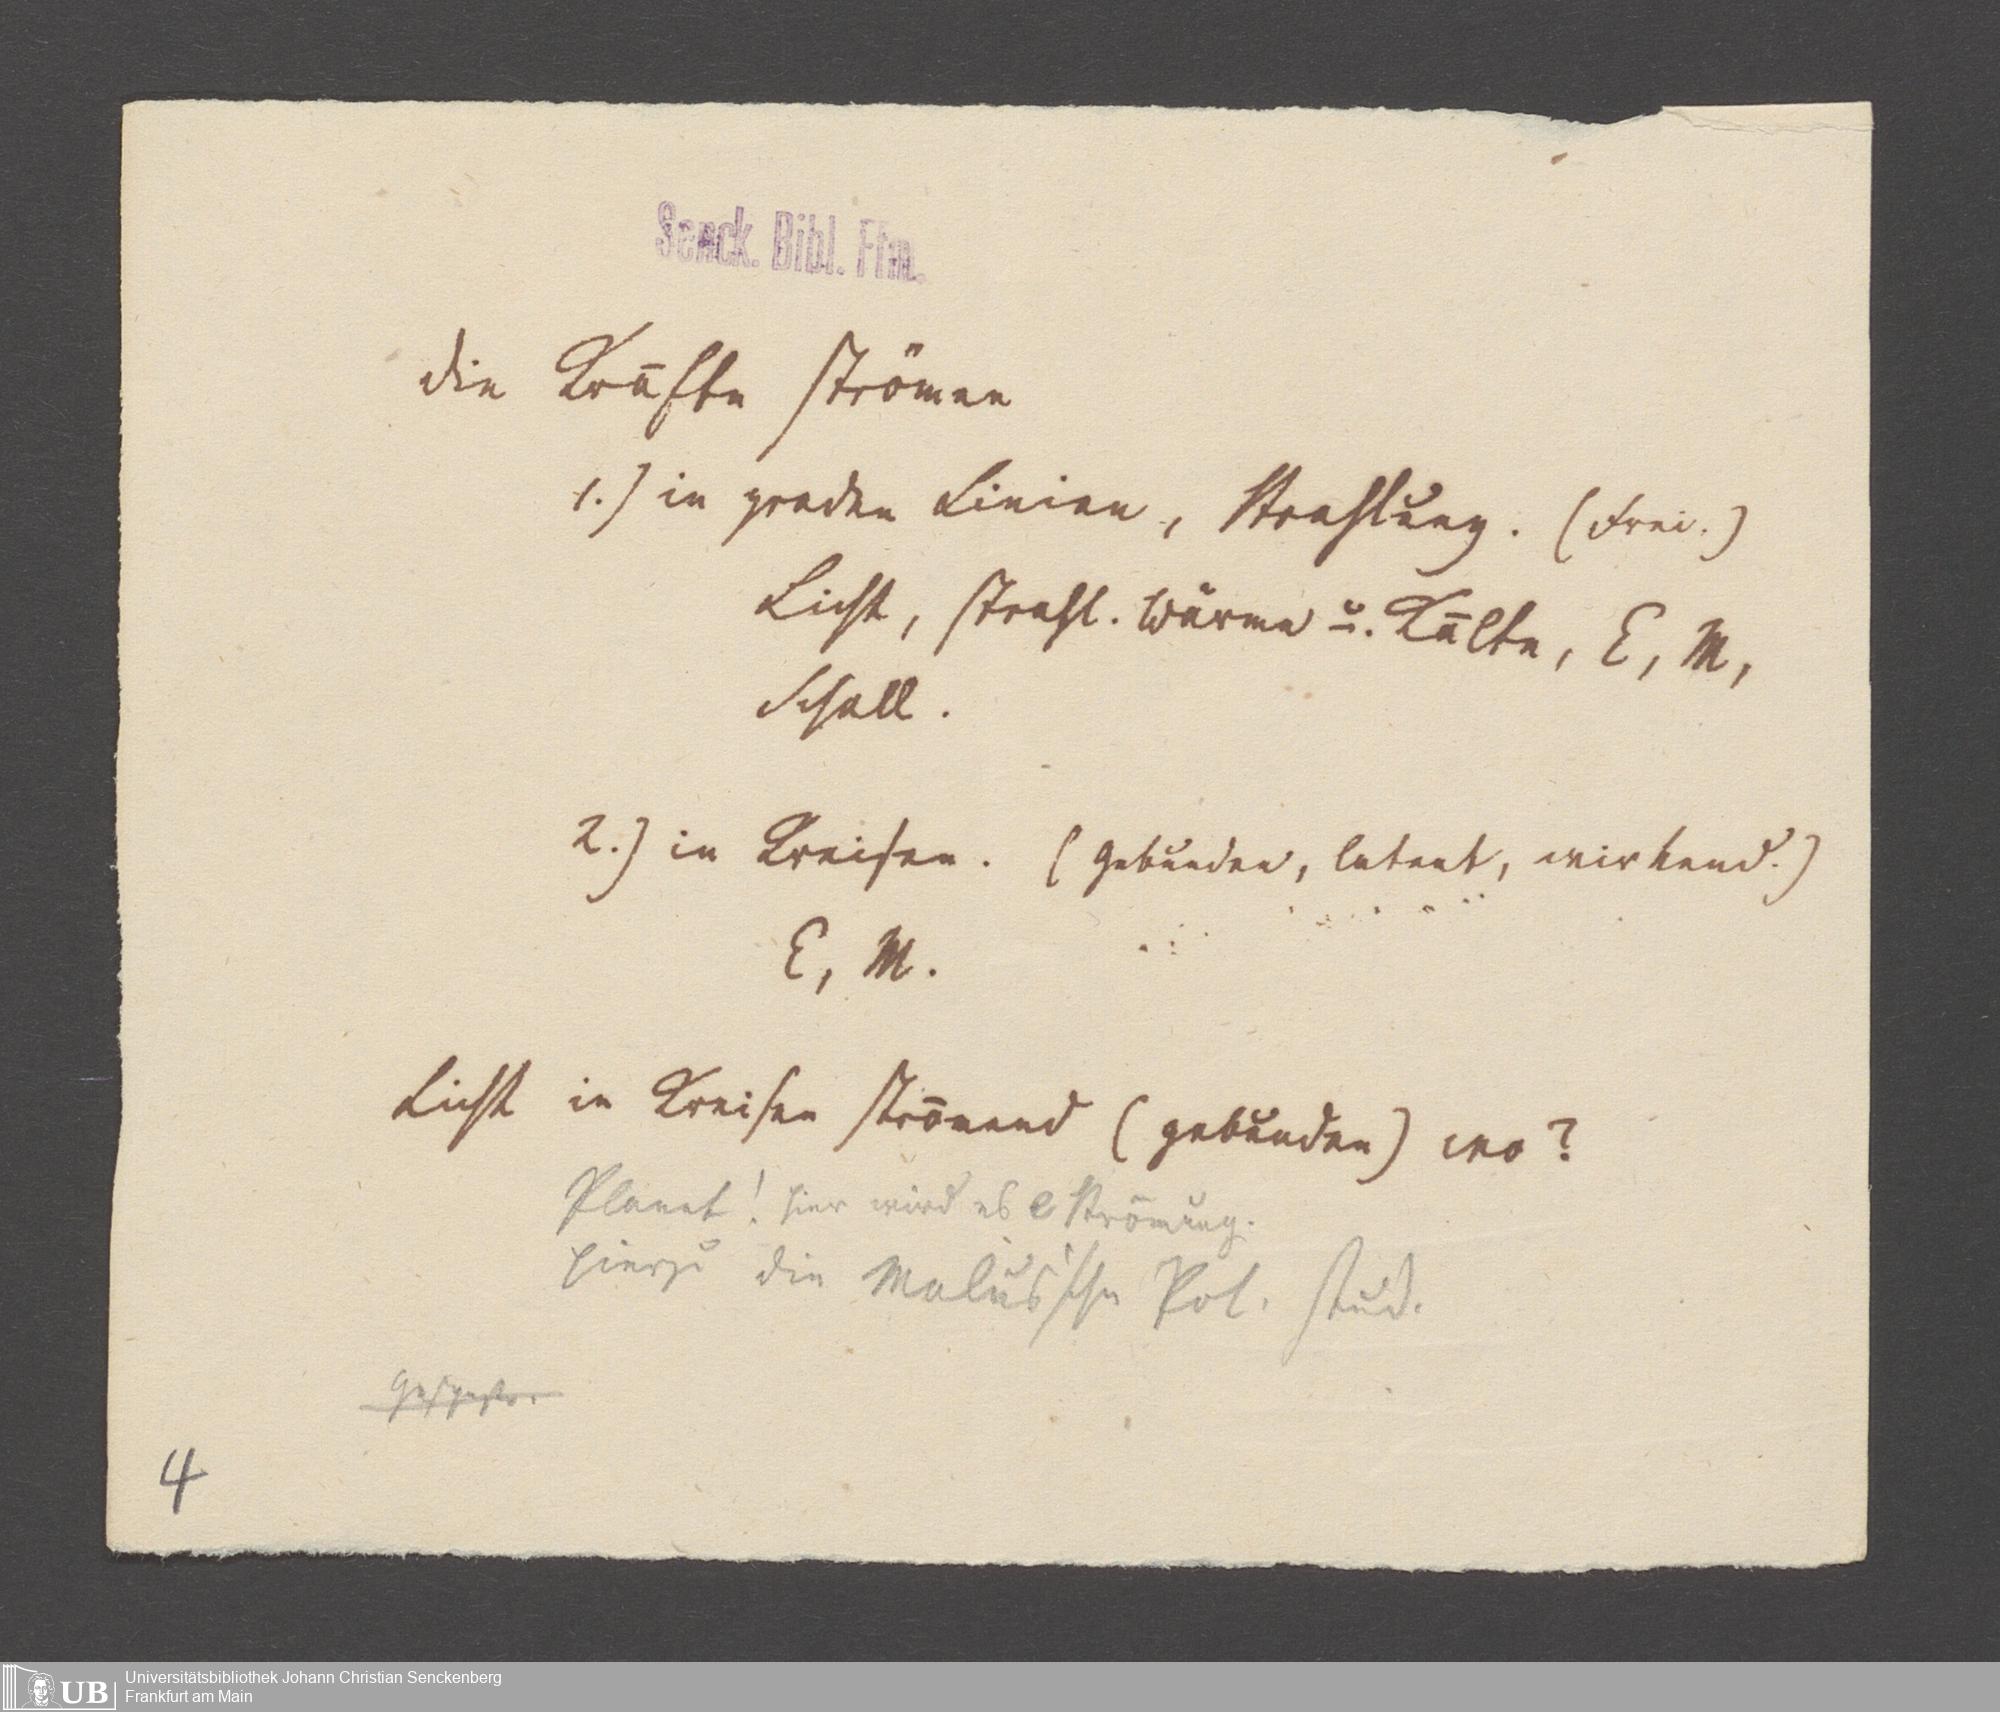 Senck. Bibl. Ffm.
die Kräfte strömen
1.) in graden Linien, Strahlung. (Frei.)
Licht, strahl. Wärme u. Kälte, E, M,
Schall.
2.) in Kreisen. (Gebunden, latent, wirkend.)
E, M.
Licht in Kreisen strömend (gebunden) wo?
Planet! hier wird es e Strömung.
hierzu die Malus'sche Pol. stud.
4
UB Universitätsbibliothek Johann Christian Senckenberg
Frankfurt am Main